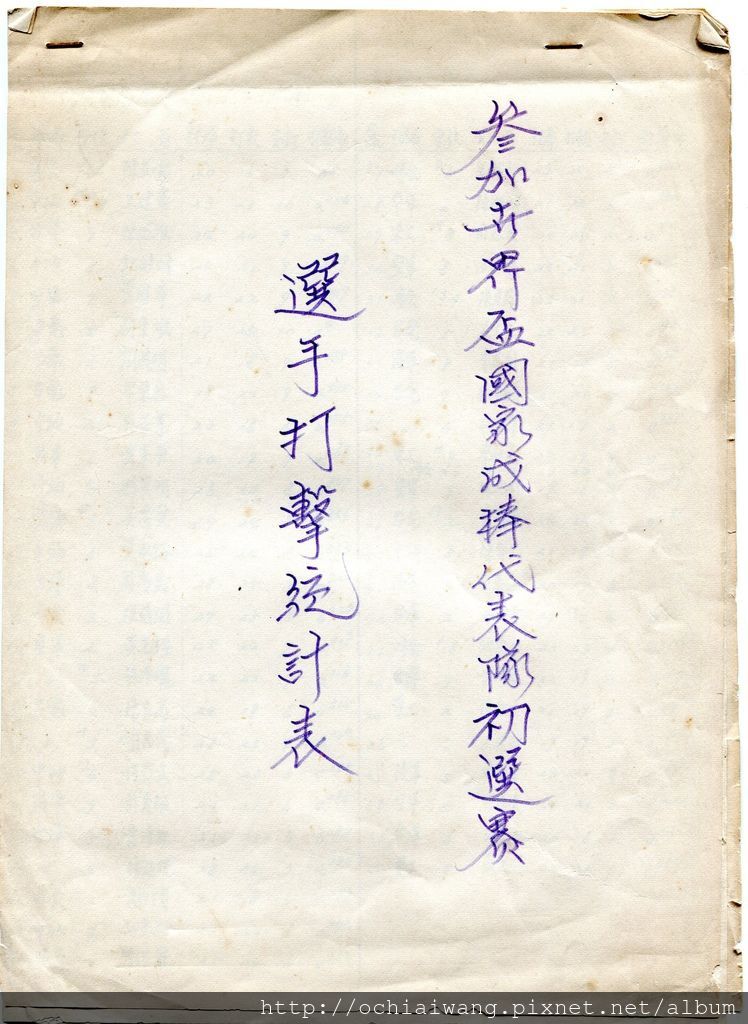 參加世界盃國家成棒代表隊初選賽
選手打擊統計表
http://ochiaiwang.pixnet.net/album